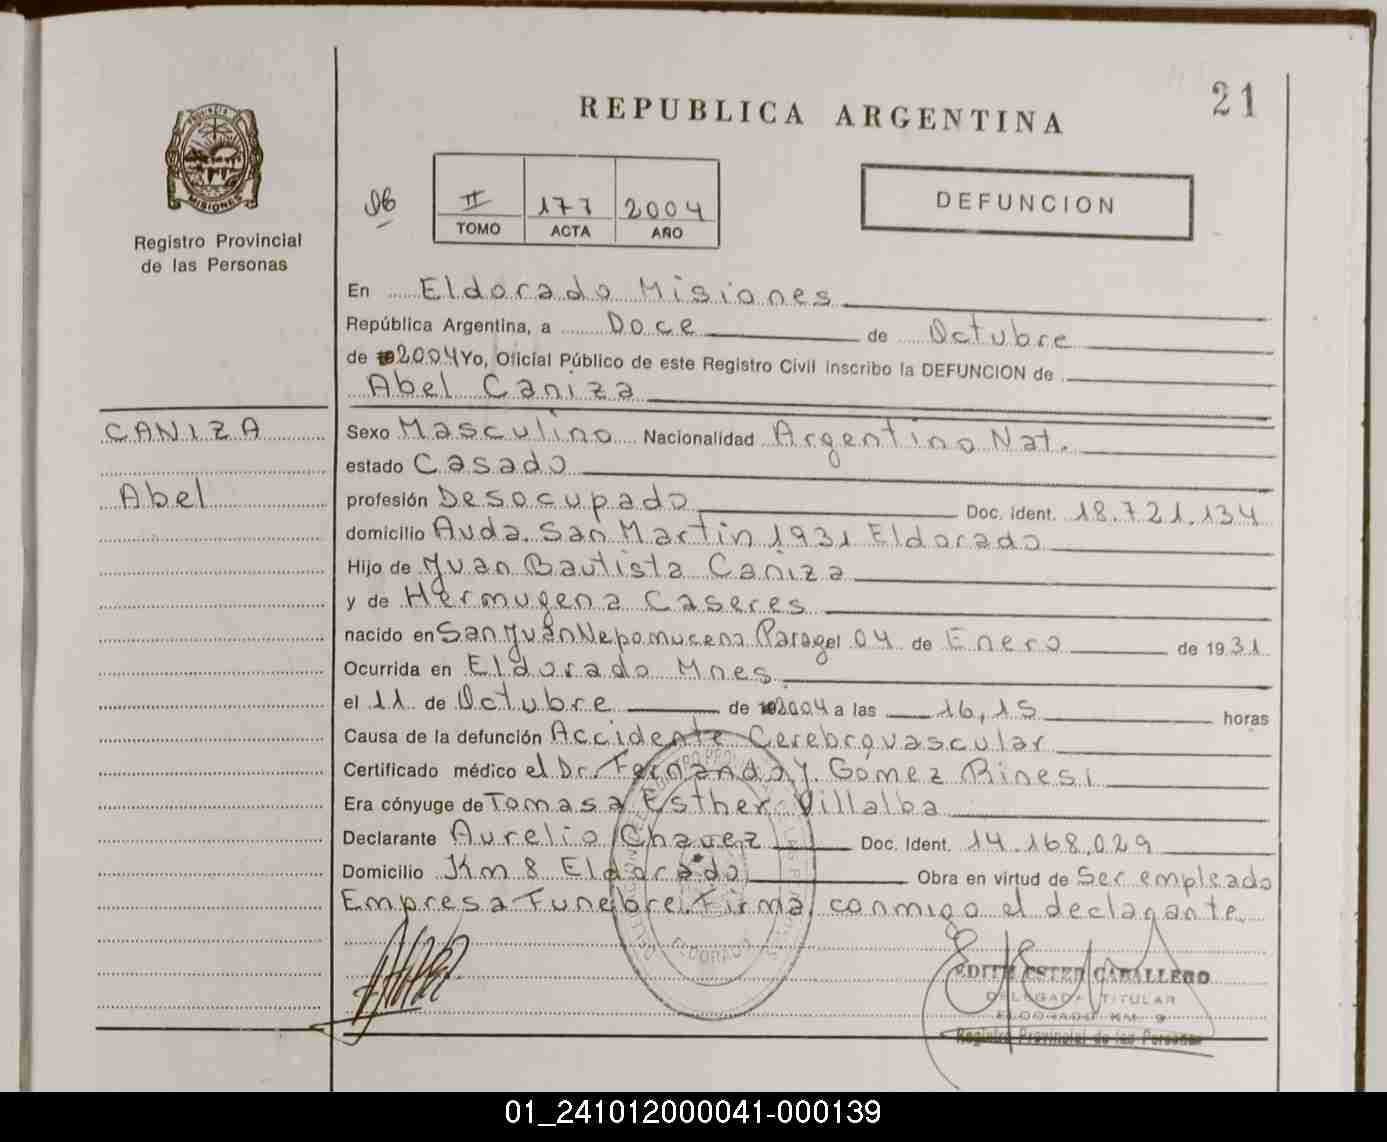 21
REPUBLICA ARGENTINA
PROVINCIA
MISIONES
Registro Provincial
de las Personas
II 177 2004
TOMO ACTA AÑO
DEFUNCION
En Eldorado Misiones
República Argentina, a Doce de Octubre
de 2004 Yo, Oficial Público de este Registro Civil inscribo la DEFUNCION de
Abel Caniza
CANIZA
Abel
Sexo Masculino Nacionalidad Argentino Nat.
estado Casado
profesión Desocupado Doc. Ident. 18.721.134
domicilio Avda. San Martin 1931 Eldorado
Hijo de Juan Bautista Caniza
y de Hermugena Caseres
nacido en San Juan Nepomucena Paragel 04 de Enero de 1931
Ocurrida en Eldorado Mnes.
el 11 de Octubre de 2004 a las 16,15 horas
Causa de la defunción Accidente Cerebrovascular
Certificado médico el Dr. Fernando J. Gómez Rinesi
Era cónyuge de Tomasa Esther Villalba
Declarante Aurelio Chavez Doc. Ident. 14.168.029
Domicilio Km 8 Eldorado Obra en virtud de Ser empleado
Empresa Funebre. Firma conmigo el declarante
ELDORADO
EDITH ESTER CABALLERO
DELEGADA TITULAR
ELDORADO KM. 9
Registro Provincial de las Personas
01_241012000041-000139